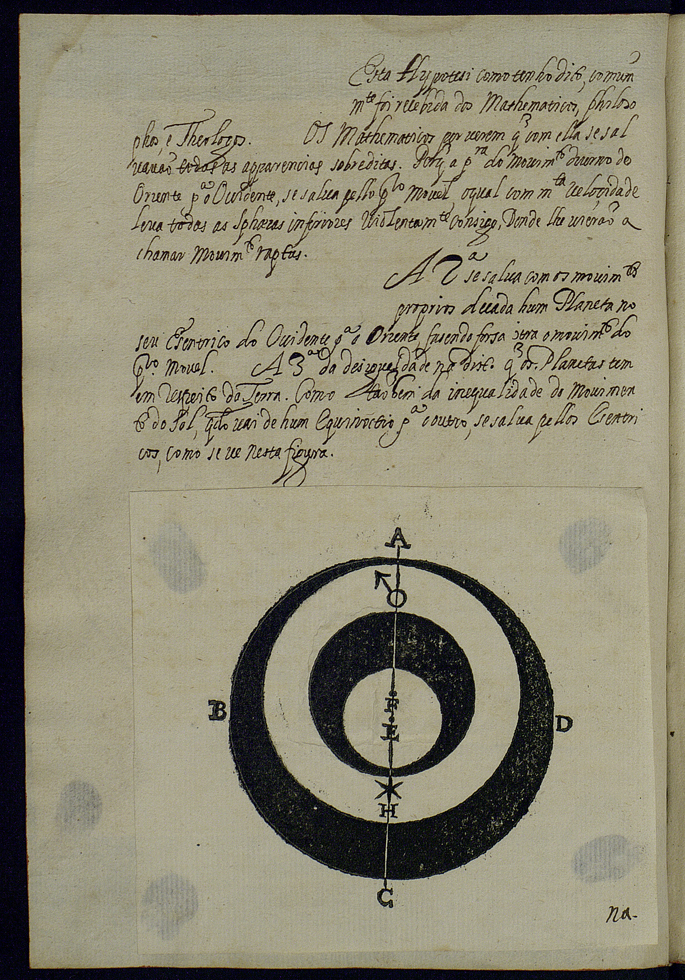 Esta Hypotesi como tenho dito, comum
mte foi recebida dos Mathematicos, philoso
phos, e Theologos. OS Mathematicos por verem q̃ com ella se sal
vavaõ todas as apparencias sobreditas. Porq̃ a pra do movimto diurno do
Oriente pa o Ocidente, se salva pello pro Movel, o qual com mta velocidade
leva todas as Spheras inferiores violentamte consigo, Donde lhe vieraõ a
chamar Movimto raptus.
A 2a se salva com os movimtos
proprios de cada hum Planeta no
seu Esentrico do Ocidente pa o Oriente, fasendo forsa contra o movimto do
pro Movel. A 3a da desigualdade na dist. q̃ os Planetas tem
em respeito da Terra. Como tãobem da inequalidade do Movimen
to do Sol, qdo vai de hum Equinoctio pa o outro, se salva pellos Esentri
cos, como se ve nesta figura.
A
♂
B
F
D
E
H
C
na-